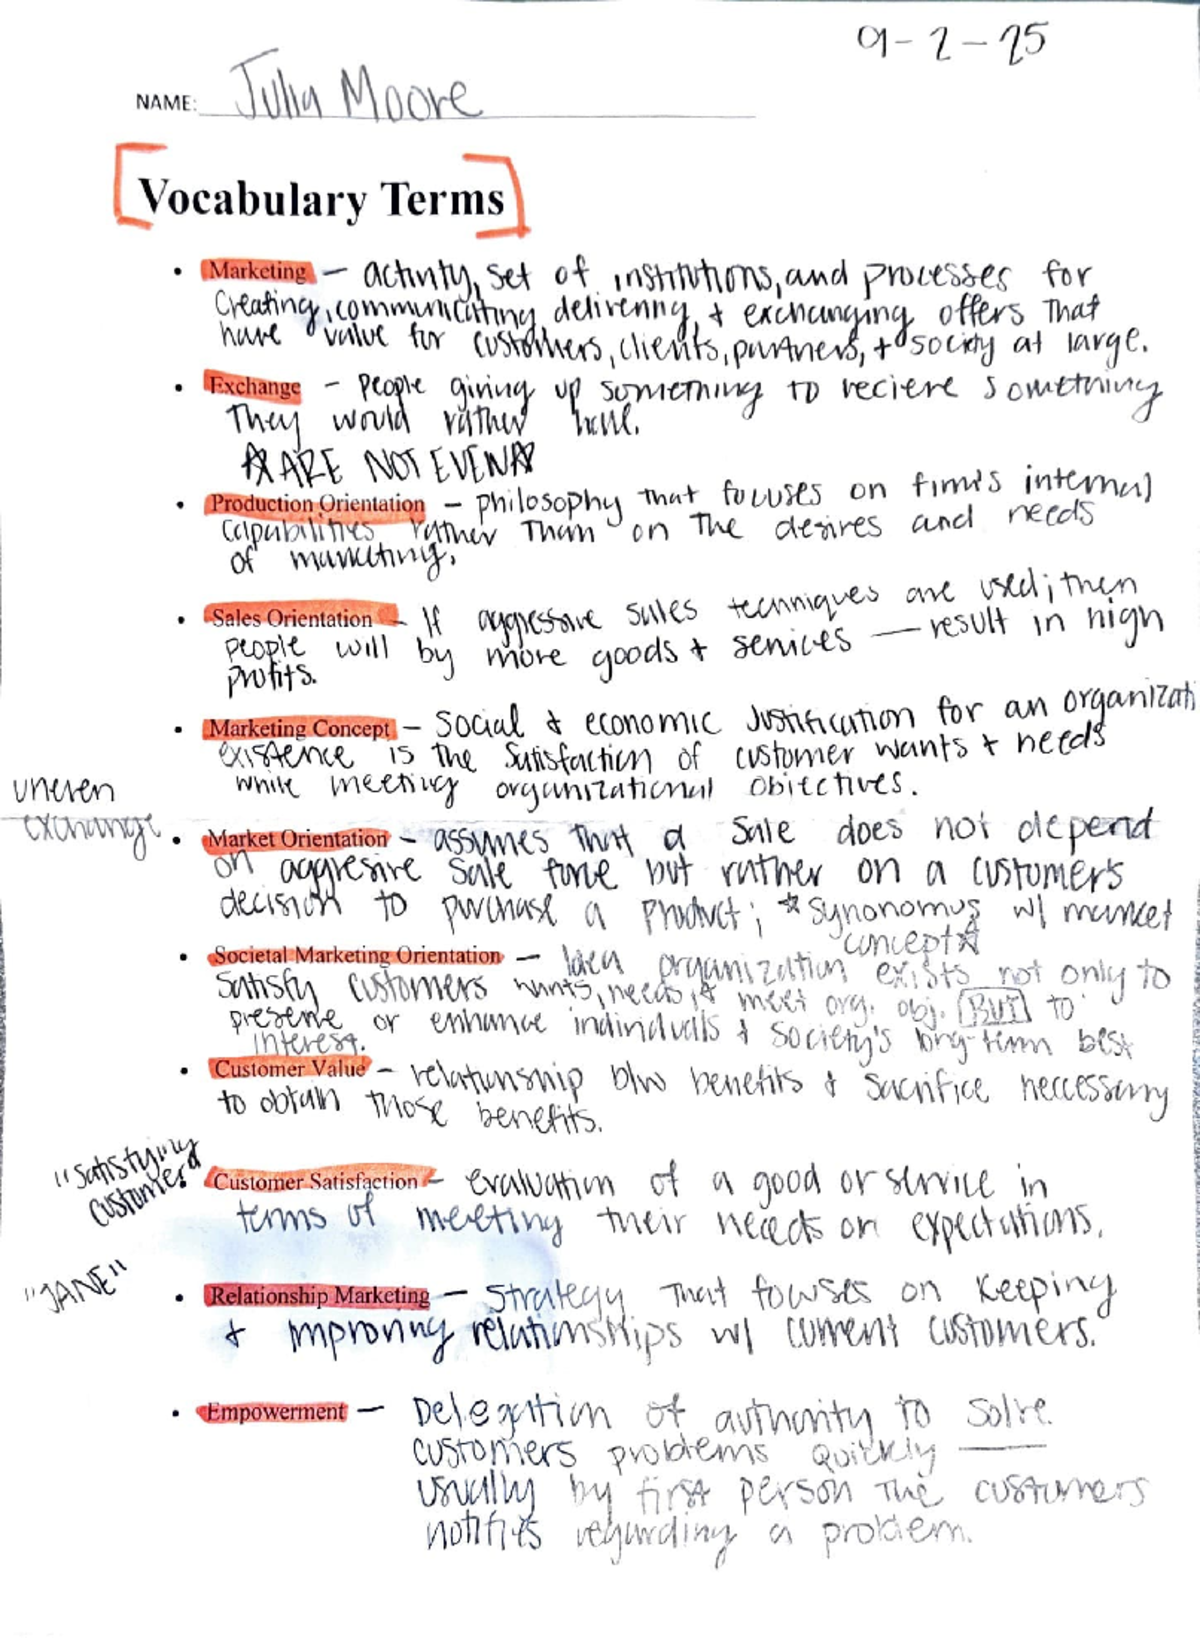 9-2-25
NAME: Julia Moore
Vocabulary Terms
• Marketing — activity, set of institutions, and processes for
creating, communicating, delivering, & exchanging offers that
have value for customers, clients, partners, & society at large.
• Exchange - people giving up something to recieve something
they would rather have.
☆ ARE NOT EVEN ☆
• Production Orientation - philosophy that focuses on firm's internal
capabilities rather than on the desires and needs
of marketing.
• Sales Orientation - If aggressive sales techniques are used; then
people will by more goods & services — result in high
profits.
• Marketing Concept - social & economic justification for an organizati
existence is the satisfaction of customer wants & needs
while meeting organizational objectives.
uneven
exchange
• Market Orientation - assumes that a sale does not depend
on aggresive sale force but rather on a customer's
decision to purchase a product; *synonomus w/ market
concept☆
• Societal Marketing Orientation — Idea organization exists not only to
satisfy customers wants, needs, & meet org. obj. BUT to
preserve or enhance individuals & society's long-term best
interest.
• Customer Value - relationship b/w benefits & sacrifice neccessary
to obtain those benefits.
"satisfying
customer"
Customer Satisfaction - evaluation of a good or service in
terms of meeting their needs or expectations.
"JANE"
• Relationship Marketing — strategy that focuses on keeping
& improving relationships w/ current customers.
• Empowerment — Delegation of authority to solve
customers problems quickly —
usually by first person the customers
notifies regarding a problem.